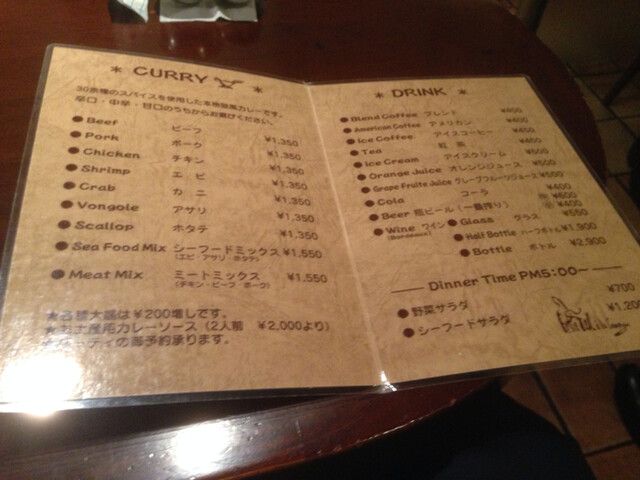 * CURRY *
30余種のスパイスを使用した本格欧風カレーです。
辛口・中辛・甘口のうちからお選びください。
● Beef ビーフ ¥1,350
● Pork ポーク ¥1,350
● Chicken チキン ¥1,350
● Shrimp エビ ¥1,350
● Crab カニ ¥1,350
● Vongole アサリ ¥1,350
● Scallop ホタテ ¥1,350
● Sea Food Mix シーフードミックス ¥1,550
(エビ・アサリ・ホタテ)
● Meat Mix ミートミックス ¥1,550
(チキン・ビーフ・ポーク)
★各種大盛は¥200増しです。
★お土産用カレーソース(2人前 ¥2,000より)
★パーティの御予約承ります。
* DRINK *
● Blend Coffee ブレンド ¥400
● American Coffee アメリカン ¥400
● Ice Coffee アイスコーヒー ¥450
● Tea 紅茶 ¥400
● Ice Cream アイスクリーム ¥500
● Orange Juice オレンジジュース ¥500
● Grape Fruite Juice グレープフルーツジュース ¥500
● Cola コーラ ¥400
● Beer 瓶ビール(一番搾り) ¥600
¥400
● Wine ワイン ● Glass グラス ¥550
(Bordeaux) ● Half Bottle ハーフボトル ¥1,900
● Bottle ボトル ¥2,900
Dinner Time PM5:00~
● 野菜サラダ ¥700
● シーフードサラダ ¥1,200